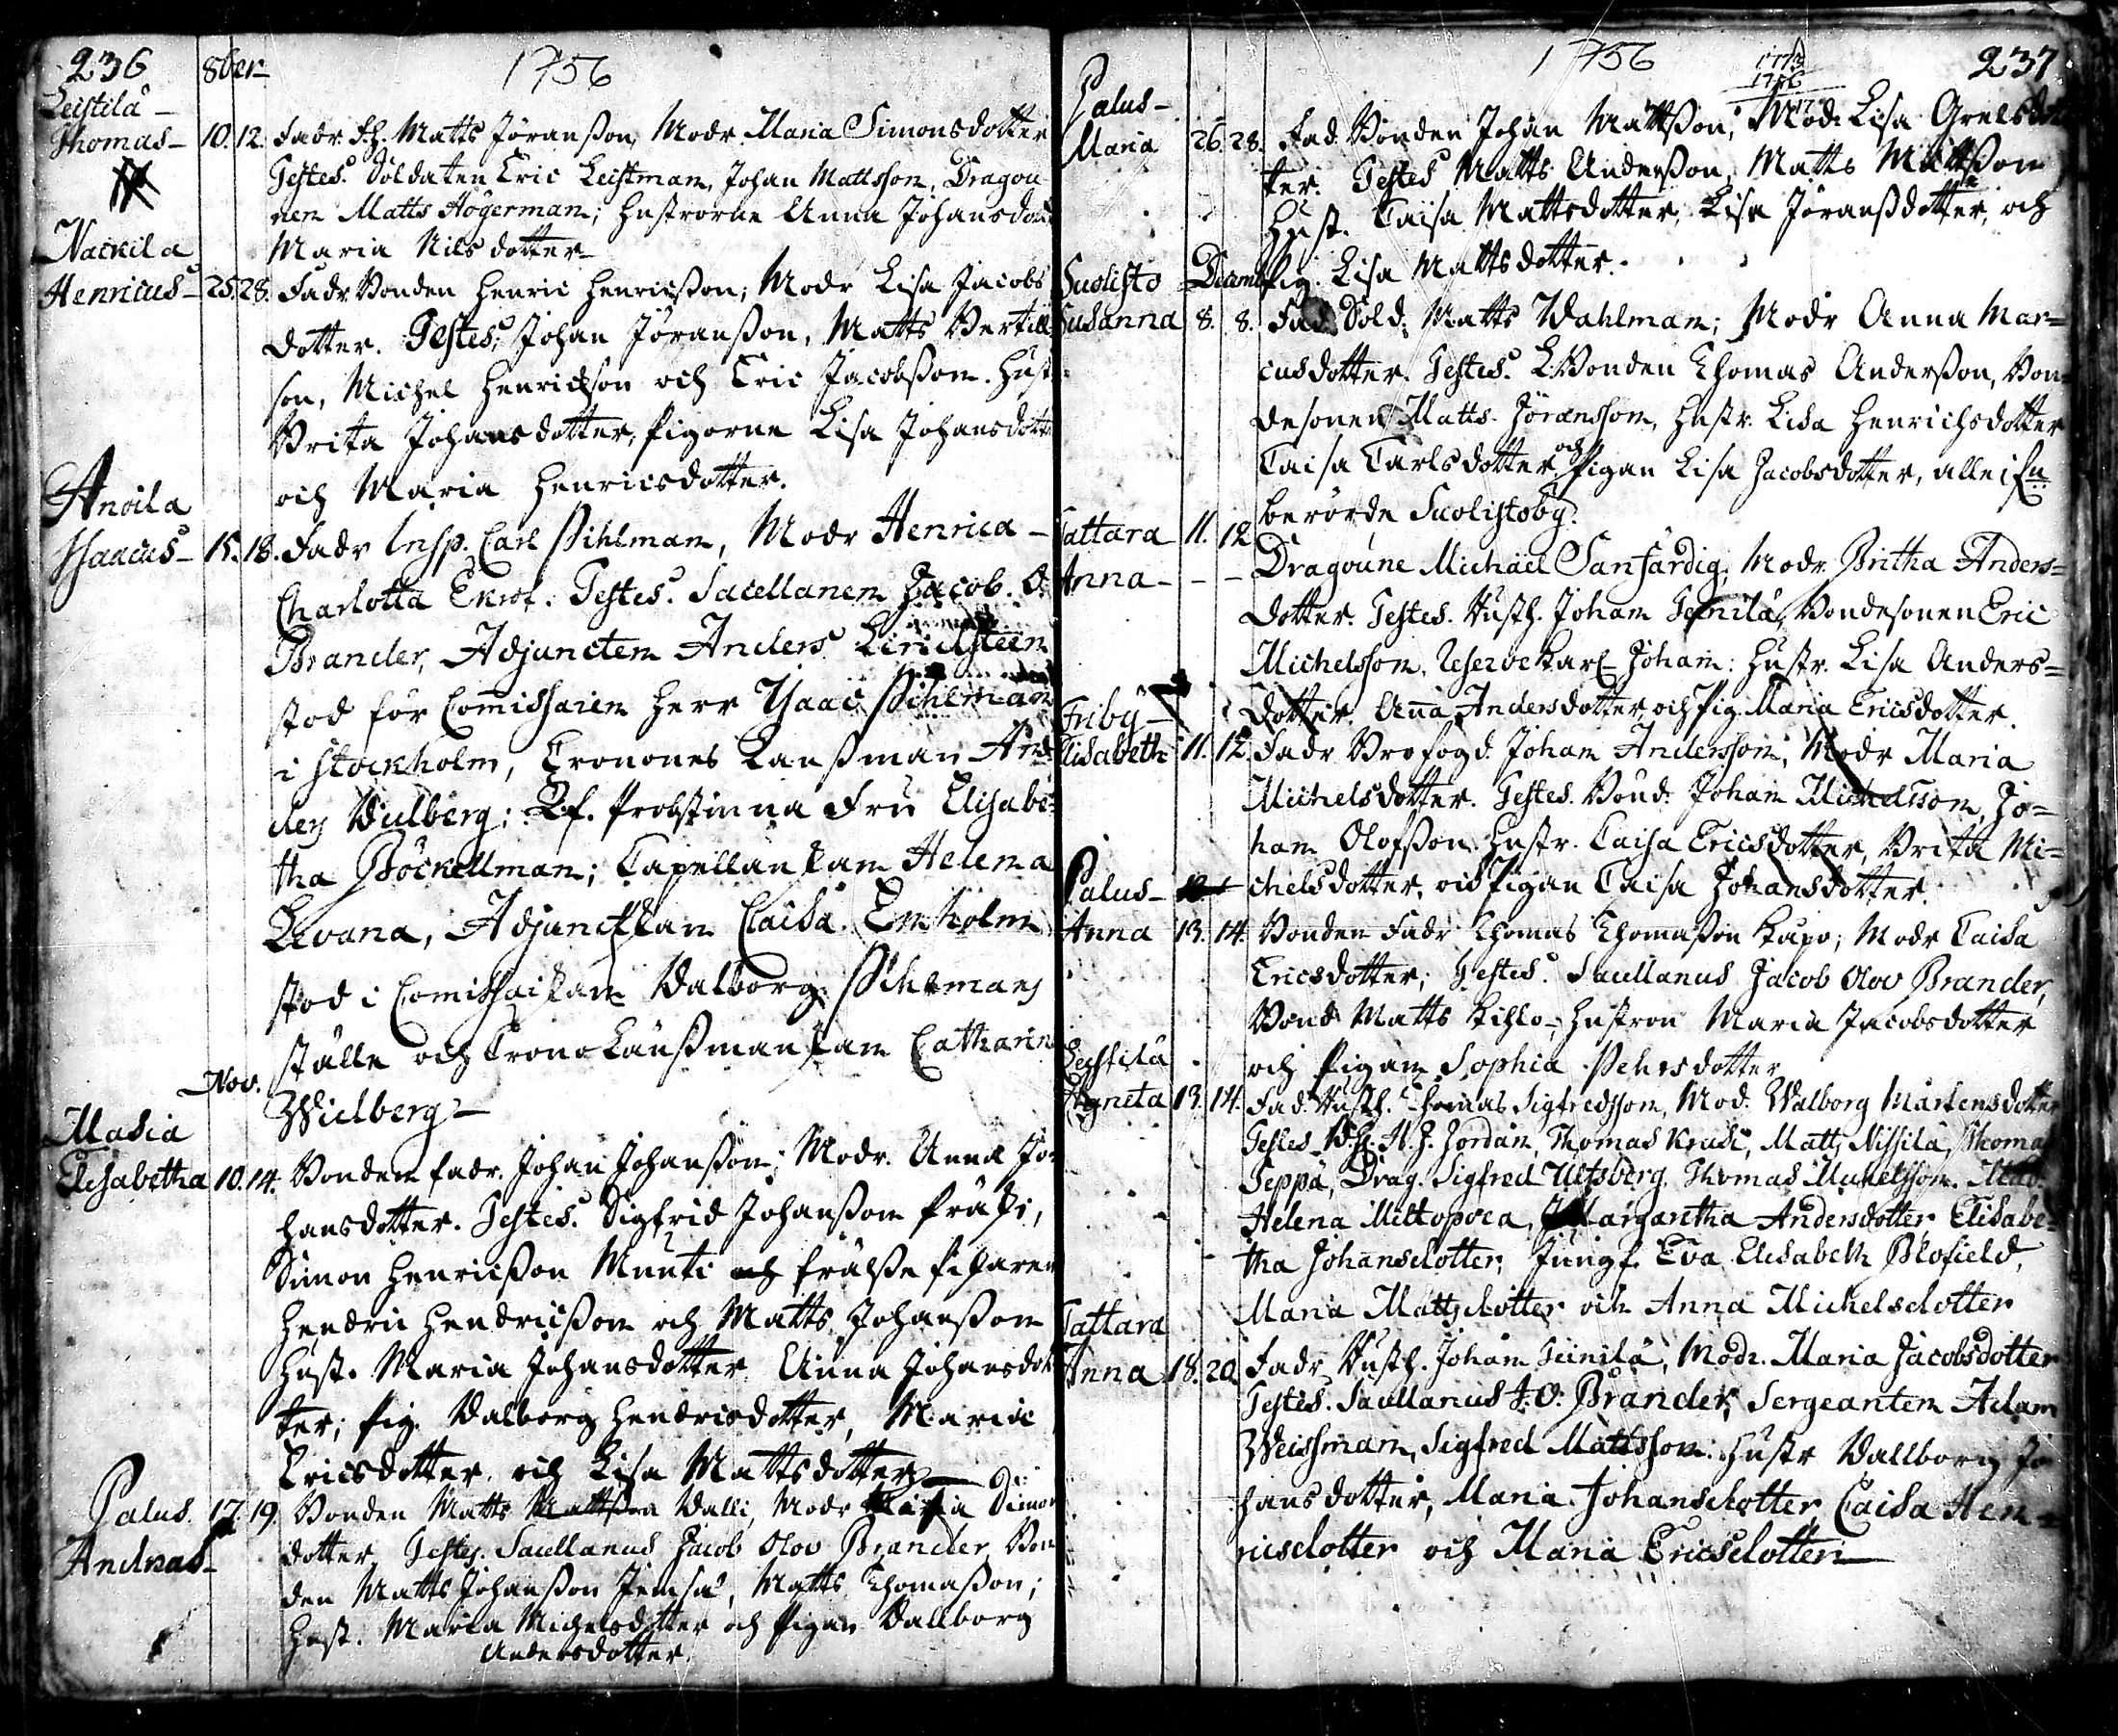 236 8ber 1756
Leistilä
Thomas 10. 12. Fadr. Matts Jöranßon, Modr. Maria Simonsdotter
Testes. Soldaten Eric Leistman, Johan Mattsson, Dragou
nen Matts Högerman; hustrorne Anna Johansdott
Maria Nilsdotter
Nackila
Henricus 25. 28. Fadr. Bonden Henric Henricßon; Modr Lisa Jacobs
dotter. Testes, Johan Jöranßon, Matts Bertill
son, Michel Henrichson och Eric Jacobsson. Hust
Brita Johansdotter, Pigorne Lisa Johansdott
och Maria Henricsdotter.
Anoila
Isaacus 15. 18. Fadr Insp. Carl Pihlman, Modr Henrica
Charlotta Ekrof. Testes. Sacellanen Jacob. O.
Brander, Adjuncten Anders Lindsteen
stod för Commissarien Herr Isaac Pihlman
i Stockholm, Cronones Lansman And
ders Widberg; Probstinna Fru Elisabe
tha Böckellman; Capellanskan Helena
Levana, Adjunctskan Caisa Enholm
stod i Commissariskan Walborg Pihlmans
ställe och Crono Länsmanskan Catharin
Widberg
Nov.
Masia
Elisabetha 10. 14. Bonden fadr. Johan Johanßon; Modr. Anna Jo
hansdotter. Testes. Sigfrid Johanßon Präki,
Simon Henricßon Munti och frälse
Hendric Hendricßon och Matts Johanßon
Hust. Maria Johansdotter Anna Johansdot
ter; Pig. Walborg Hendricsdotter, Maria
Ericsdotter, och Lisa Mattsdotter
Palus. 17. 19. Bonden Matts Mattßon Walli, Modr Maria Simon
Andreas dotter Testes. Sacellanus Jacob Olov Brander, Bon
den Matts Johanßon Jemsä, Matts Thomaßon;
Hust. Maria Michelsdotter och Pigan Wallborg
Andersdotter.
1756 1756 237
Palus
Maria 26. 28. Fad. Bonden Johan Mattßon, Mod. Lisa Grelsdot
ter. Testes Matts Anderßon, Matts Mattßon
Hust. Caisa Mattsdotter, Lisa Jöranßdotter, och
Suolisto Decemb Pig. Lisa Mattsdotter.
Susanna 8. 8. Fad. Sold. Matts Wahlman; Modr Anna Mar=
cusdotter. Testes. Bonden Thomas Anderßon, Bon
desonen Matts Jöransson, Hustr. Lisa Henrichsdotter
Caisa Carlsdotter och Pigan Lisa Jacobsdotter, alle i
berörde Suolistoby.
Tattara 11. 12
Anna - - - Dragoune Michäel Sanfärdig, Modr. Britha Anders=
dotter. Testes. Johan Teinilä, Bondesonen Eric
Michelsson, Reservekarl Johan: Hustr. Lisa Anders=
dotter. Anna Andersdotter och Pig. Maria Ericsdotter.
Friby
Elisabeth 11. 12. Fadr Brofogd. Johan Andersson, Modr Maria
Michelsdotter. Testes. Bond. Johan Michelsson, Jo=
han Olofßon, Hustr. Caisa Ericsdotter, Brita Mi=
chelsdotter, och Pigan Caisa Johansdotter.
Palus
Anna 13. 14. Bonden Fadr Thomas Thomaßon Kupo; Modr Caisa
Ericsdotter; Testes. Sacellanus Jacob Olov Brander,
Bond Matts Kihlo; Hustron Maria Jacobsdotter
och Pigan Sophia Pehrsdotter
Leistilä
Agneta 13. 14. Fad. Thomas Sigfredsson, Mod. Walborg Mårtensdotter
Testes. H. J. Jordan, Thomas Krusi, Matts Nissilä, Thomas
Seppä, Drag. Sigfred Ulfsberg, Thomas Michelsson.
Helena Miltopoea, Margaretha Andersdotter Elisabe=
tha Johansdotter, Jungf. Eva Elisabeth Blofield,
Maria Mattsdotter och Anna Michelsdotter
Tattara
Anna 18. 20 Fadr. Johan Teinilä, Modr. Maria Jacobsdotter
Testes. Sacellanus J. O. Brander, Sergeanten Adam
Weissman, Sigfred Mattsson: Hustr Wallborg Jo
hansdotter, Maria Johansdotter, Caisa Hen=
ricsdotter och Maria Ericsdotter